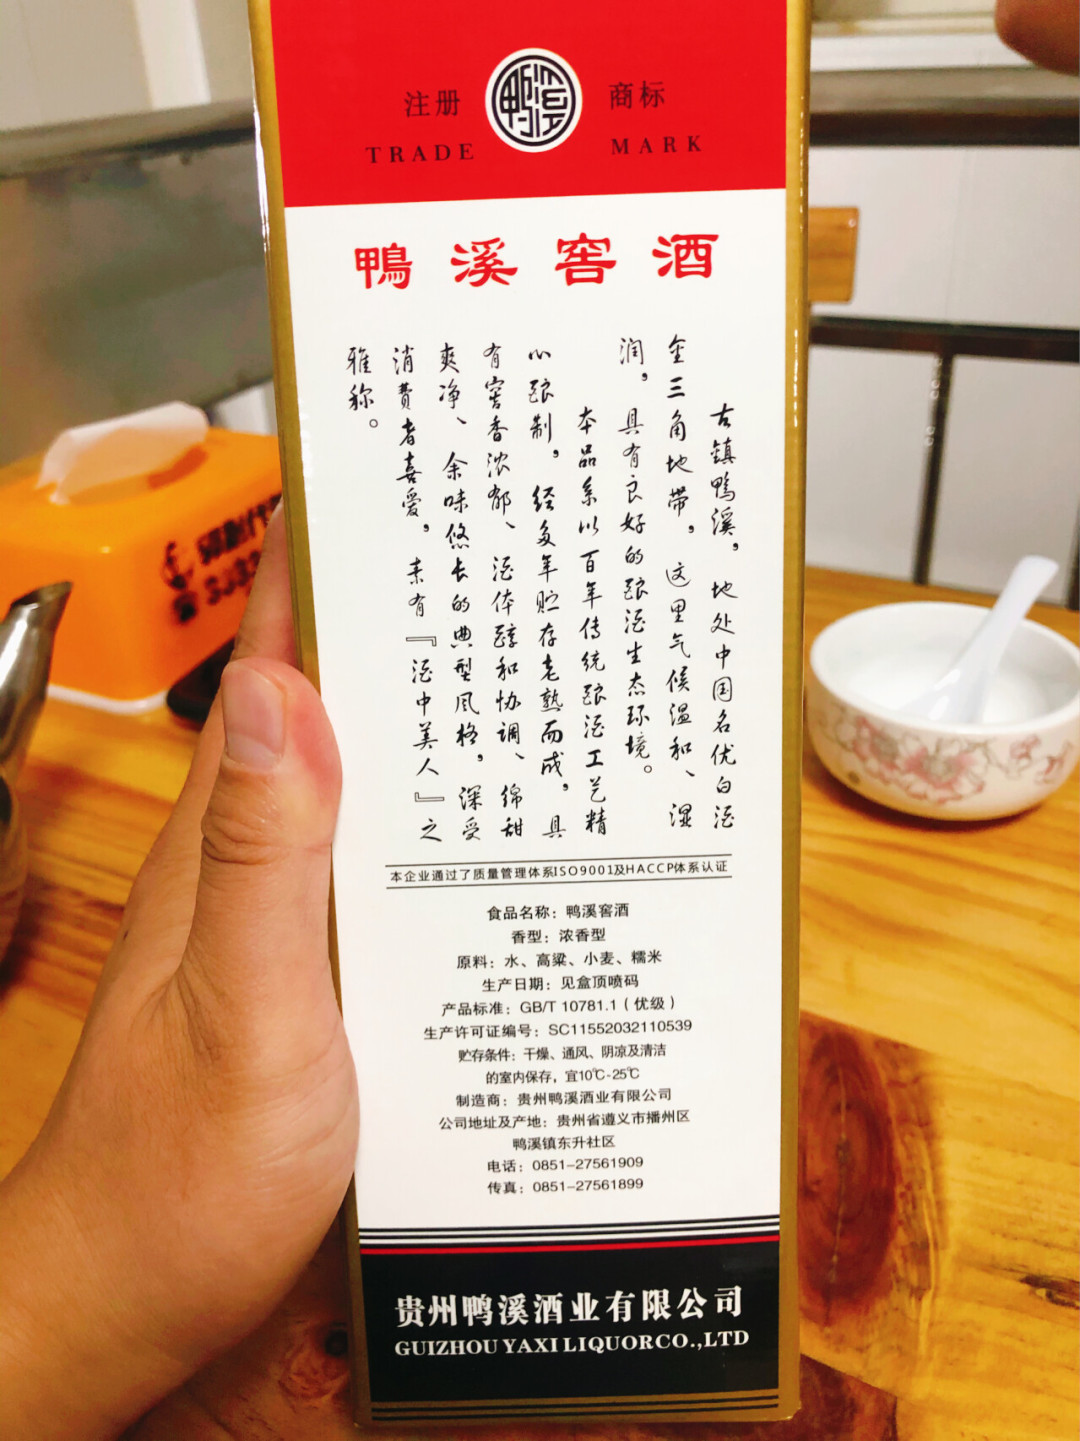 注册 鸭溪 商标
TRADE MARK
鴨溪窖酒
古镇鸭溪，地处中国名优白酒
金三角地带，这里气候温和、湿
润，具有良好的酿酒生态环境。
本品系以百年传统酿酒工艺精
心酿制，经多年贮存老熟而成，具
有窖香浓郁、酒体醇和协调、绵甜
爽净、余味悠长的典型风格，深受
消费者喜爱，素有『酒中美人』之
雅称。
本企业通过了质量管理体系ISO9001及HACCP体系认证
食品名称：鸭溪窖酒
香型：浓香型
原料：水、高粱、小麦、糯米
生产日期：见盒顶喷码
产品标准：GB/T 10781.1（优级）
生产许可证编号：SC11552032110539
贮存条件：干燥、通风、阴凉及清洁
的室内保存，宜10℃-25℃
制造商：贵州鸭溪酒业有限公司
公司地址及产地：贵州省遵义市播州区
鸭溪镇东升社区
电话：0851-27561909
传真：0851-27561899
贵州鸭溪酒业有限公司
GUIZHOU YAXI LIQUOR CO.,LTD